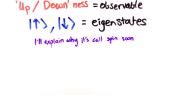 'Up / Down' ness = observable
|↑⟩, |↓⟩ = eigenstates
I'll explain why it's call spin soon